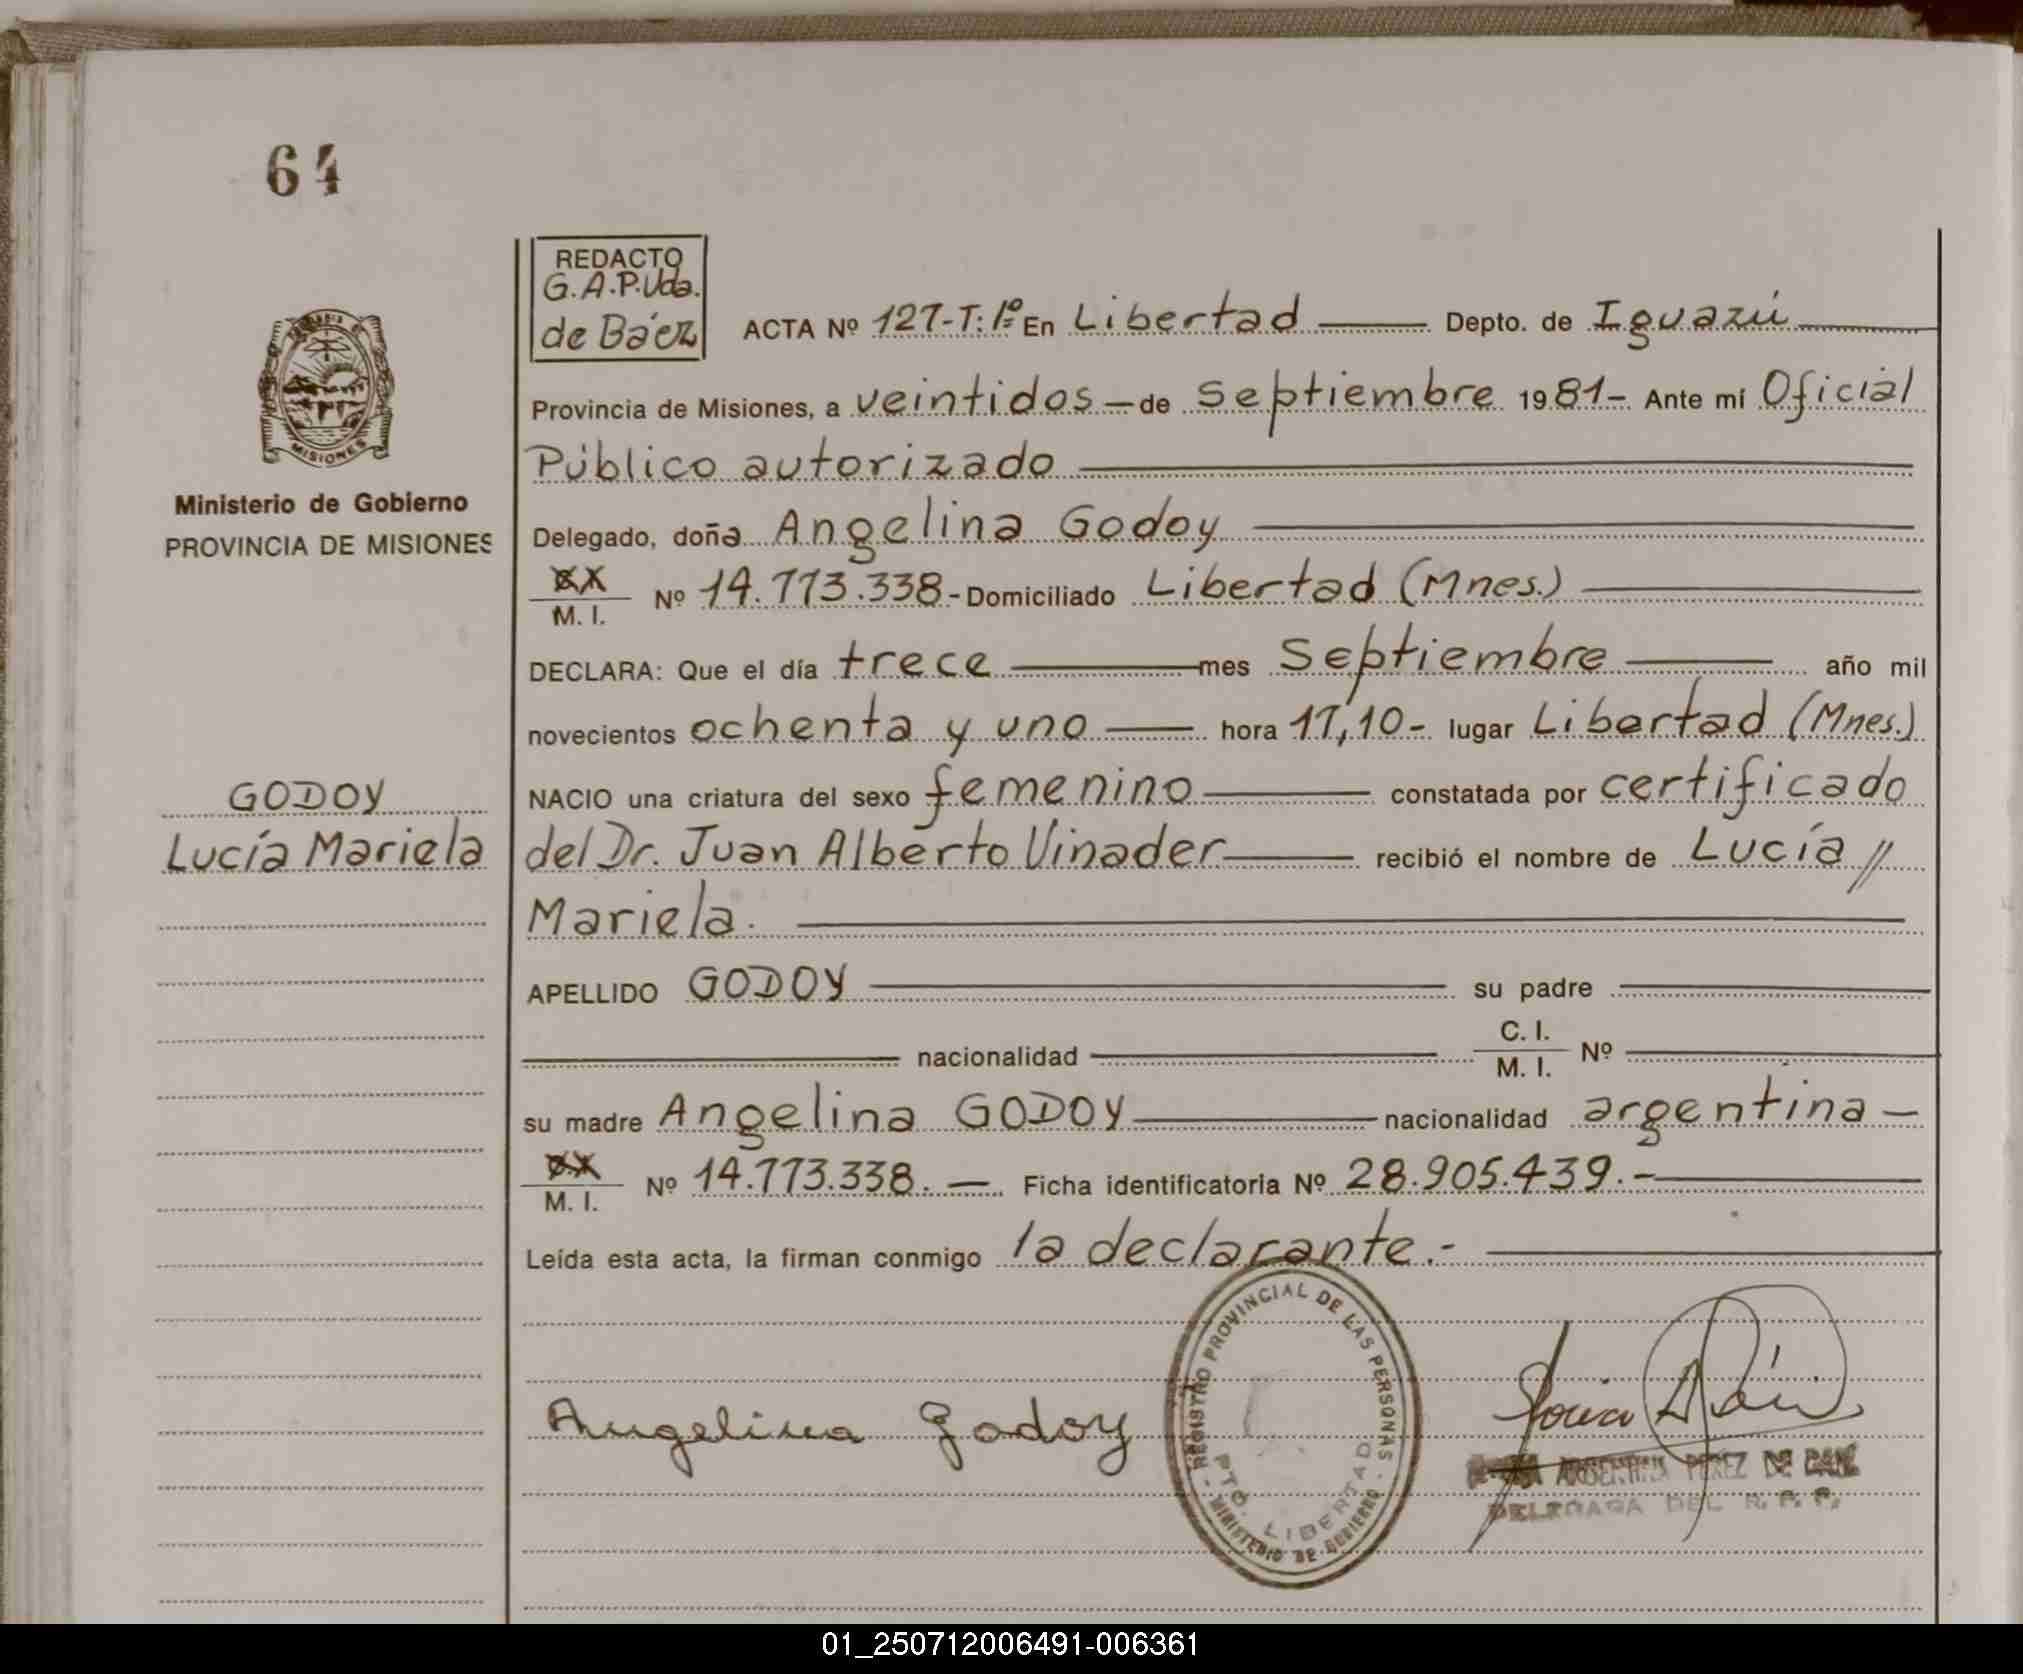 64
REDACTO
G.A.P.Vda.
de Báez
ACTA Nº 127-T:1º En Libertad Depto. de Iguazú
Provincia de Misiones, a veintidos de septiembre 1981- Ante mí Oficial
Público autorizado
Delegado, doña Angelina Godoy
M. I. Nº 14.773.338.- Domiciliado Libertad (Mnes.)
DECLARA: Que el día trece mes septiembre año mil
novecientos ochenta y uno hora 17,10- lugar Libertad (Mnes.)
NACIO una criatura del sexo femenino constatada por certificado
del Dr. Juan Alberto Vinader recibió el nombre de Lucía //
Mariela.
APELLIDO GODOY su padre
nacionalidad C. I. M. I. Nº
su madre Angelina GODOY nacionalidad argentina —
M. I. Nº 14.773.338. — Ficha identificatoria Nº 28.905.439.-
Leída esta acta, la firman conmigo la declarante.-
MISIONES
Ministerio de Gobierno
PROVINCIA DE MISIONES
GODOY
Lucía Mariela
Angelina Godoy
REGISTRO PROVINCIAL DE LAS PERSONAS
PTO. LIBERTAD
MINISTERIO DE GOBIERNO
ARGENTINA PEREZ DE BAEZ
DELEGADA DEL R. P. P.
01_250712006491-006361